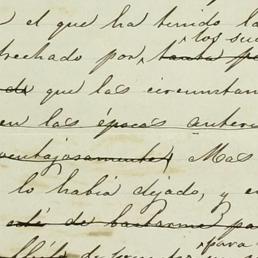 el que ha tenido la
los su
trechado por, tanta p
que las circunstan
en las épocas anteri
ventajosamente, Mas
lo había dejado, y en
está de bastarme pa
para